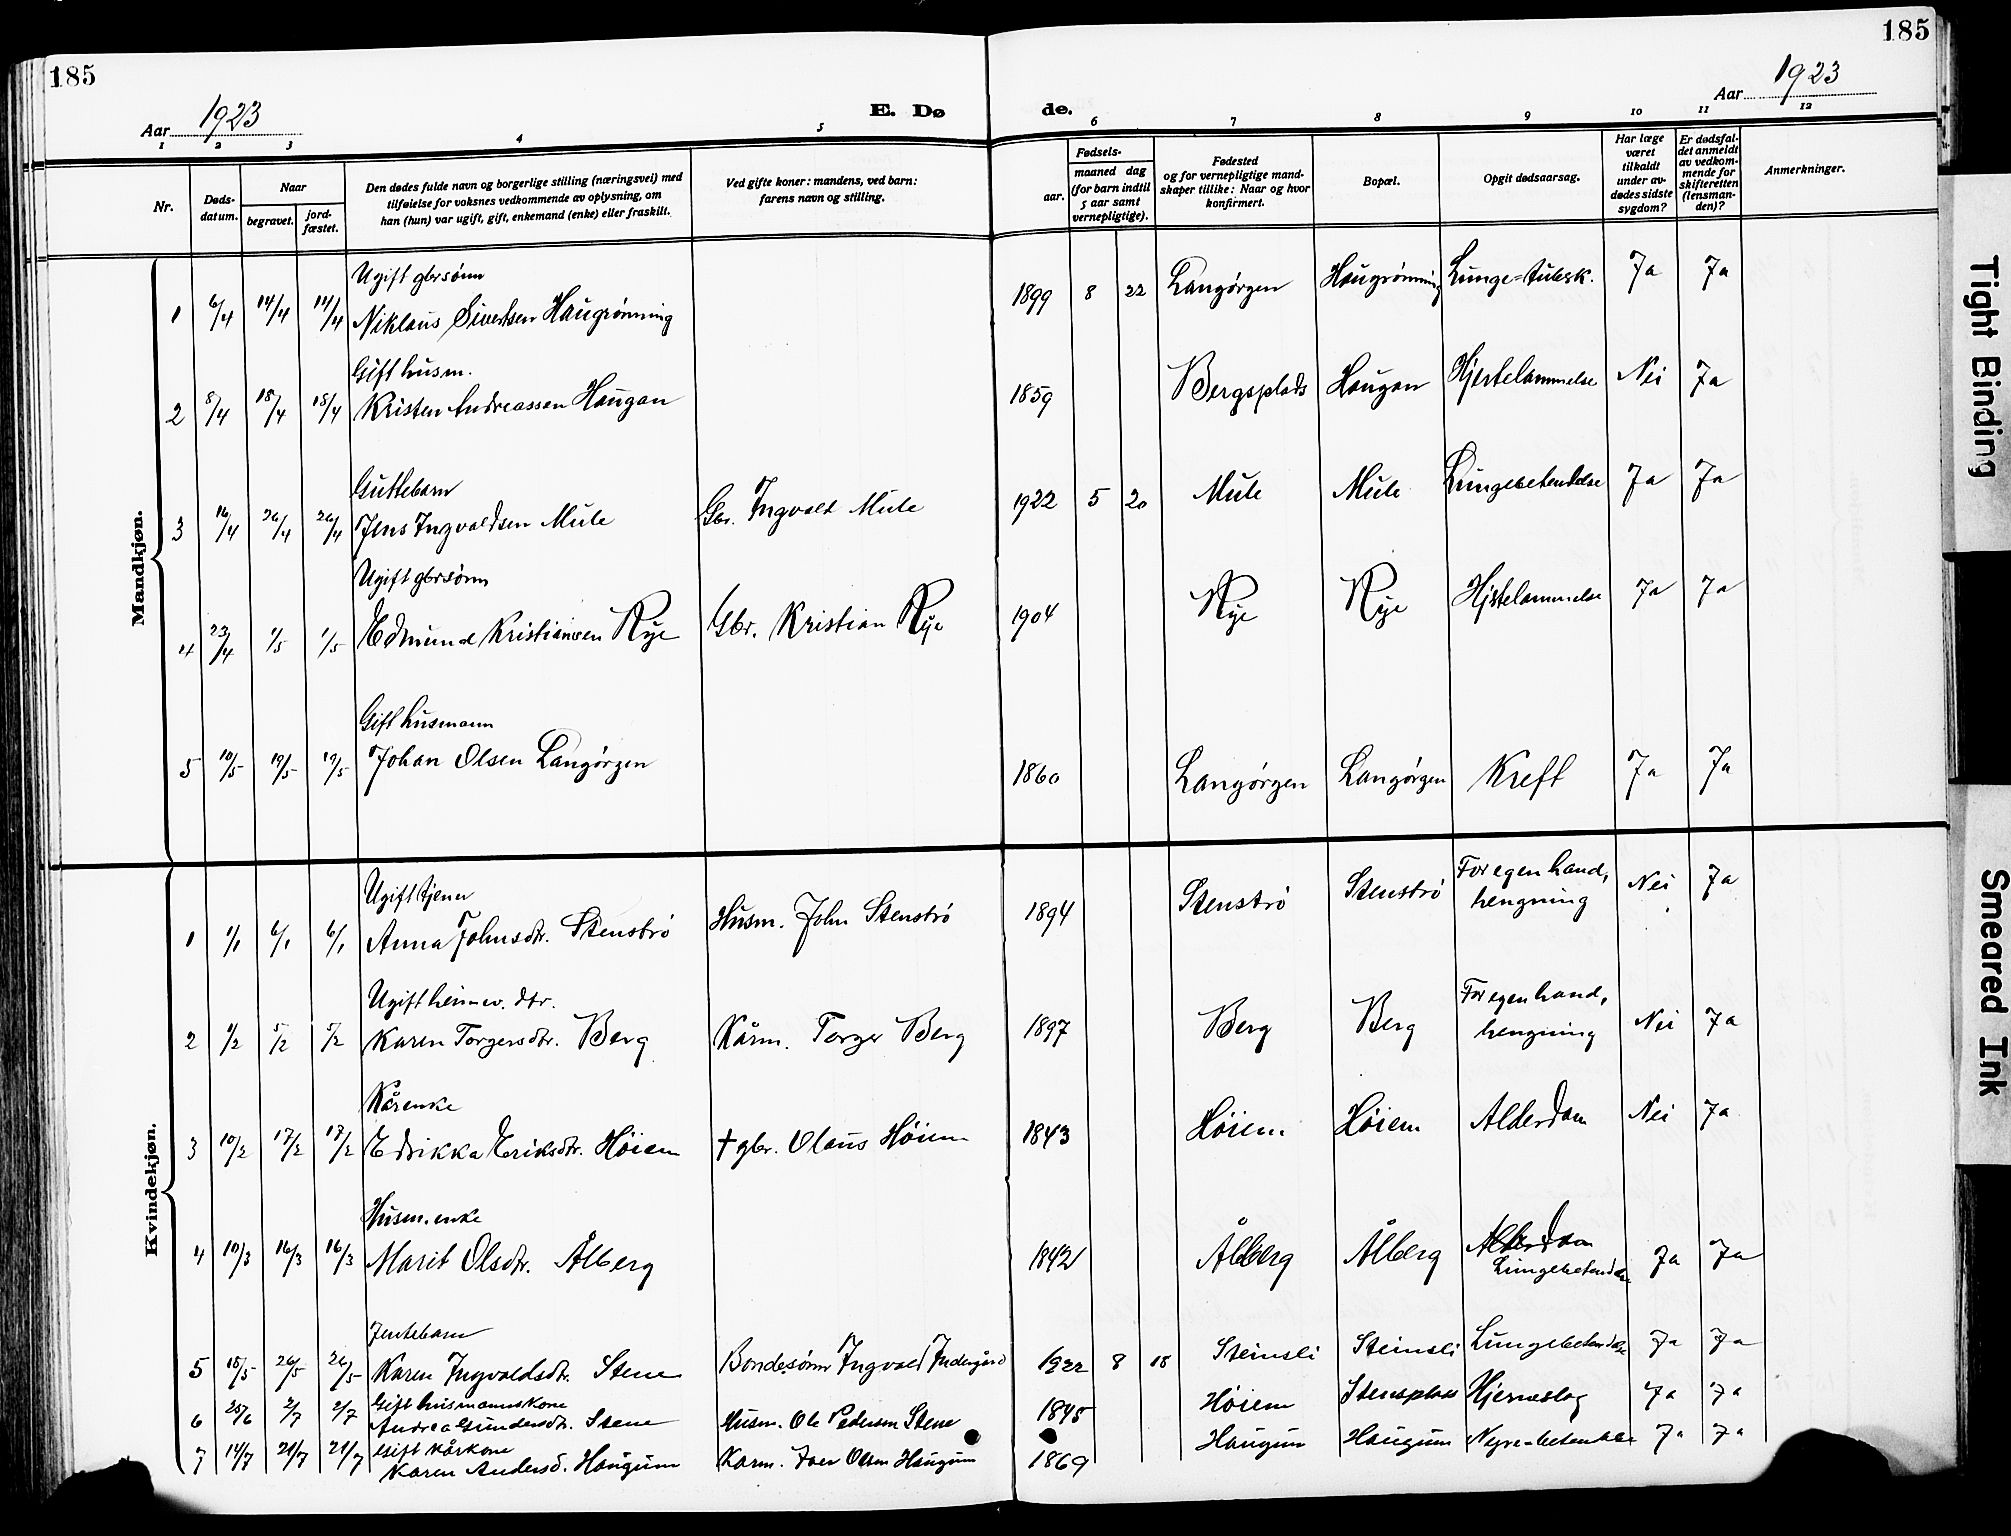 185
185
Aar 1923
E. Døde.
Aar 1923
1 2 3 4 5 6 7 8 9 10 11 12
Nr.
Døds-
datum.
Naar
begravet.
jord-
fæstet.
Den dødes fulde navn og borgerlige stilling (næringsvei) med
tilføielse for voksnes vedkommende av oplysning, om
han (hun) var ugift, gift, enkemand (enke) eller fraskilt.
Ved gifte koner: mandens, ved barn:
farens navn og stilling.
Fødsels-
aar.
maaned dag
(for barn indtil
5 aar samt
vernepligtige).
Fødested
og for vernepligtige mand-
skaper tillike: Naar og hvor
konfirmert.
Bopæl.
Opgit dødsaarsag.
Har læge
været
tilkaldt
under av-
dødes sidste
sygdom?
Er dødsfal-
det anmeldt
av vedkom-
mende for
skifteretten
(lensman-
den)?
Anmerkninger.
Mandkjøn.
Ugift gbrsønn
1 6/4 14/4 14/4 Niklaus Sivertsen Haugrønning 1899 8 22 Langørgen Haugrønning Lunge-tubrk. Ja Ja
Gift husm.
2 8/4 18/4 18/4 Kristen Andreassen Haugan 1859 Bergsplads Haugan Hjertelammelse Nei Ja
Guttebarn
3 16/4 26/4 26/4 Jens Ingvaldsen Mule Gbr. Ingvald Mule 1922 5 20 Mule Mule Lungebetendelse Ja Ja
Ugift gbrsønn
4 23/4 1/5 1/5 Edmund Kristiansen Rye Gbr. Kristian Rye 1904 Rye Rye Hjrtelammelse Ja Ja
Gift husmann
5 10/5 19/5 19/5 Johan Olsen Langørgen 1860 Langørgen Langørgen Kreft Ja Ja
Kvindekjøn.
Ugift tjener
1 1/1 6/1 6/1 Anna Johnsdtr. Stenstrø Husm. John Stenstrø 1894 Stenstrø Stenstrø For egen hand, hengning Nei Ja
Ugift heimev. dtr.
2 1/2 5/2 5/2 Karen Torgersdtr. Berg Kårm. Torger Berg 1897 Berg Berg For egen hand, hengning Nei Ja
Kårenke
3 10/2 17/2 17/2 Edrikka Eriksdtr. Høiem † gbr. Olaus Høiem 1843 Høiem Høiem Alderdom Nei Ja
Husm. enke
4 10/3 16/3 16/3 Marit Olsdtr. Ålberg 1842 Ålberg Ålberg Alderdom Lungebetendelse Ja Ja
Jentebarn
5 18/5 26/5 26/5 Karen Ingvaldsdtr. Stene Bondesønn Ingvald Indergård 1922 8 18 Steinsli Steinsli Lungebetendelse Ja Ja
Gift husmannskone
6 25/6 2/7 2/7 Andrea Gundersdtr. Stene Husm. Ole Pedersen Stene 1845 Høiem Stensplass Hjerneslag Ja Ja
Gift kårkone
7 14/7 21/7 21/7 Karen Andersd. Haugum Karm. Olsen Haugum 1869 Haugum Haugum Nyre-betendelse Ja Ja
Tight Binding
Smeared Ink